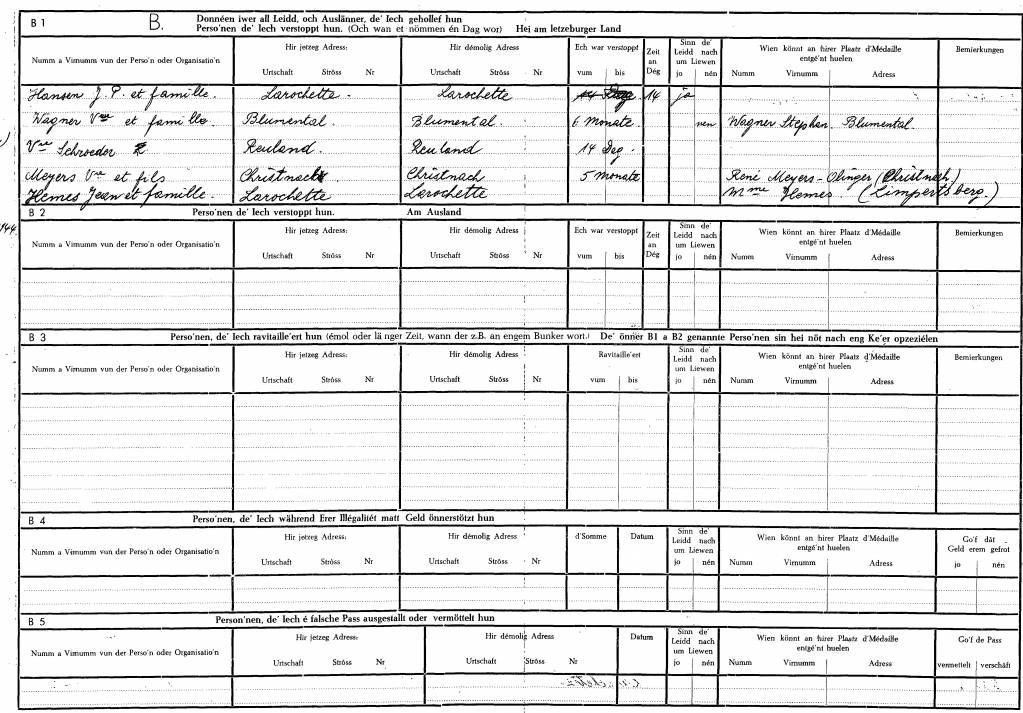 B 1 B. Donnéen iwer all Leidd, och Auslänner, de' Iech gehollef hun
Perso'nen de' Iech verstoppt hun. (Och wan et nömmen én Dag wor) Hei am letzeburger Land
Numm a Virnumm vun der Perso'n oder Organisatio'n
Hir jetzeg Adress:
Urtschaft Ströss Nr
Hir démolig Adress
Urtschaft Ströss Nr
Ech war verstoppt
vum bis
Zeit an Dég
Sinn de' Leidd nach um Liewen
jo nén
Wien könnt an hirer Plaatz d'Médaille entgé'nt huelen
Numm Virnumm Adress
Bemierkungen
Hansen J. P. et famille. Larochette. Larochette 14 ja
Wagner Vve et famille. Blumental. Blumental. 6 Monate. nen Wagner Stephan. Blumental.
Vve Schroeder Reuland. Reuland 14 Deg.
Meyers Vve et fils Christnach Christnach 5 monate René Meyers-Olinger (Christnach)
Hemes Jean et famille. Larochette Larochette Mme Hemes. (Limpertsberg.)
944
B 2 Perso'nen de' Iech verstoppt hun. Am Ausland
Numm a Virnumm vun der Perso'n oder Organisatio'n
Hir jetzeg Adress:
Urtschaft Ströss Nr
Hir démolig Adress
Urtschaft Ströss Nr
Ech war verstoppt
vum bis
Zeit an Dég
Sinn de' Leidd nach um Liewen
jo nén
Wien könnt an hirer Plaatz d'Médaille entgé'nt huelen
Numm Virnumm Adress
Bemierkungen
B 3 Perso'nen, de' Iech ravitaille'ert hun (émol oder länger Zeit, wann der z.B. an engem Bunker wort.) De' önner B1 a B2 genannte Perso'nen sin hei nöt nach eng Ke'er opzeziélen
Numm a Virnumm vun der Perso'n oder Organisatio'n
Hir jetzeg Adress:
Urtschaft Ströss Nr
Hir démolig Adress
Urtschaft Ströss Nr
Ravitaille'ert
vum bis
Sinn de' Leidd nach um Liewen
jo nén
Wien könnt an hirer Plaatz d'Médaille entgé'nt huelen
Numm Virnumm Adress
Bemierkungen
B 4 Perso'nen, de' Iech während Erer Illégalitét matt Geld önnerstötzt hun
Numm a Virnumm vun der Perso'n oder Organisatio'n
Hir jetzeg Adress:
Urtschaft Ströss Nr
Hir démolig Adress
Urtschaft Ströss Nr
d'Somme
Datum
Sinn de' Leidd nach um Liewen
jo nén
Wien könnt an hirer Plaatz d'Médaille entgé'nt huelen
Numm Virnumm Adress
Go'f dât Geld erem gefrot
jo nén
B 5 Person'nen, de' Iech é falsche Pass ausgestallt oder vermöttelt hun
Numm a Virnumm vun der Perso'n oder Organisatio'n
Hir jetzeg Adress:
Urtschaft Ströss Nr
Hir démolig Adress
Urtschaft Ströss Nr
Datum
Sinn de' Leidd nach um Liewen
jo nén
Wien könnt an hirer Plaatz d'Médaille entgé'nt huelen
Numm Virnumm Adress
Go'f de Pass
vermettelt verschâft